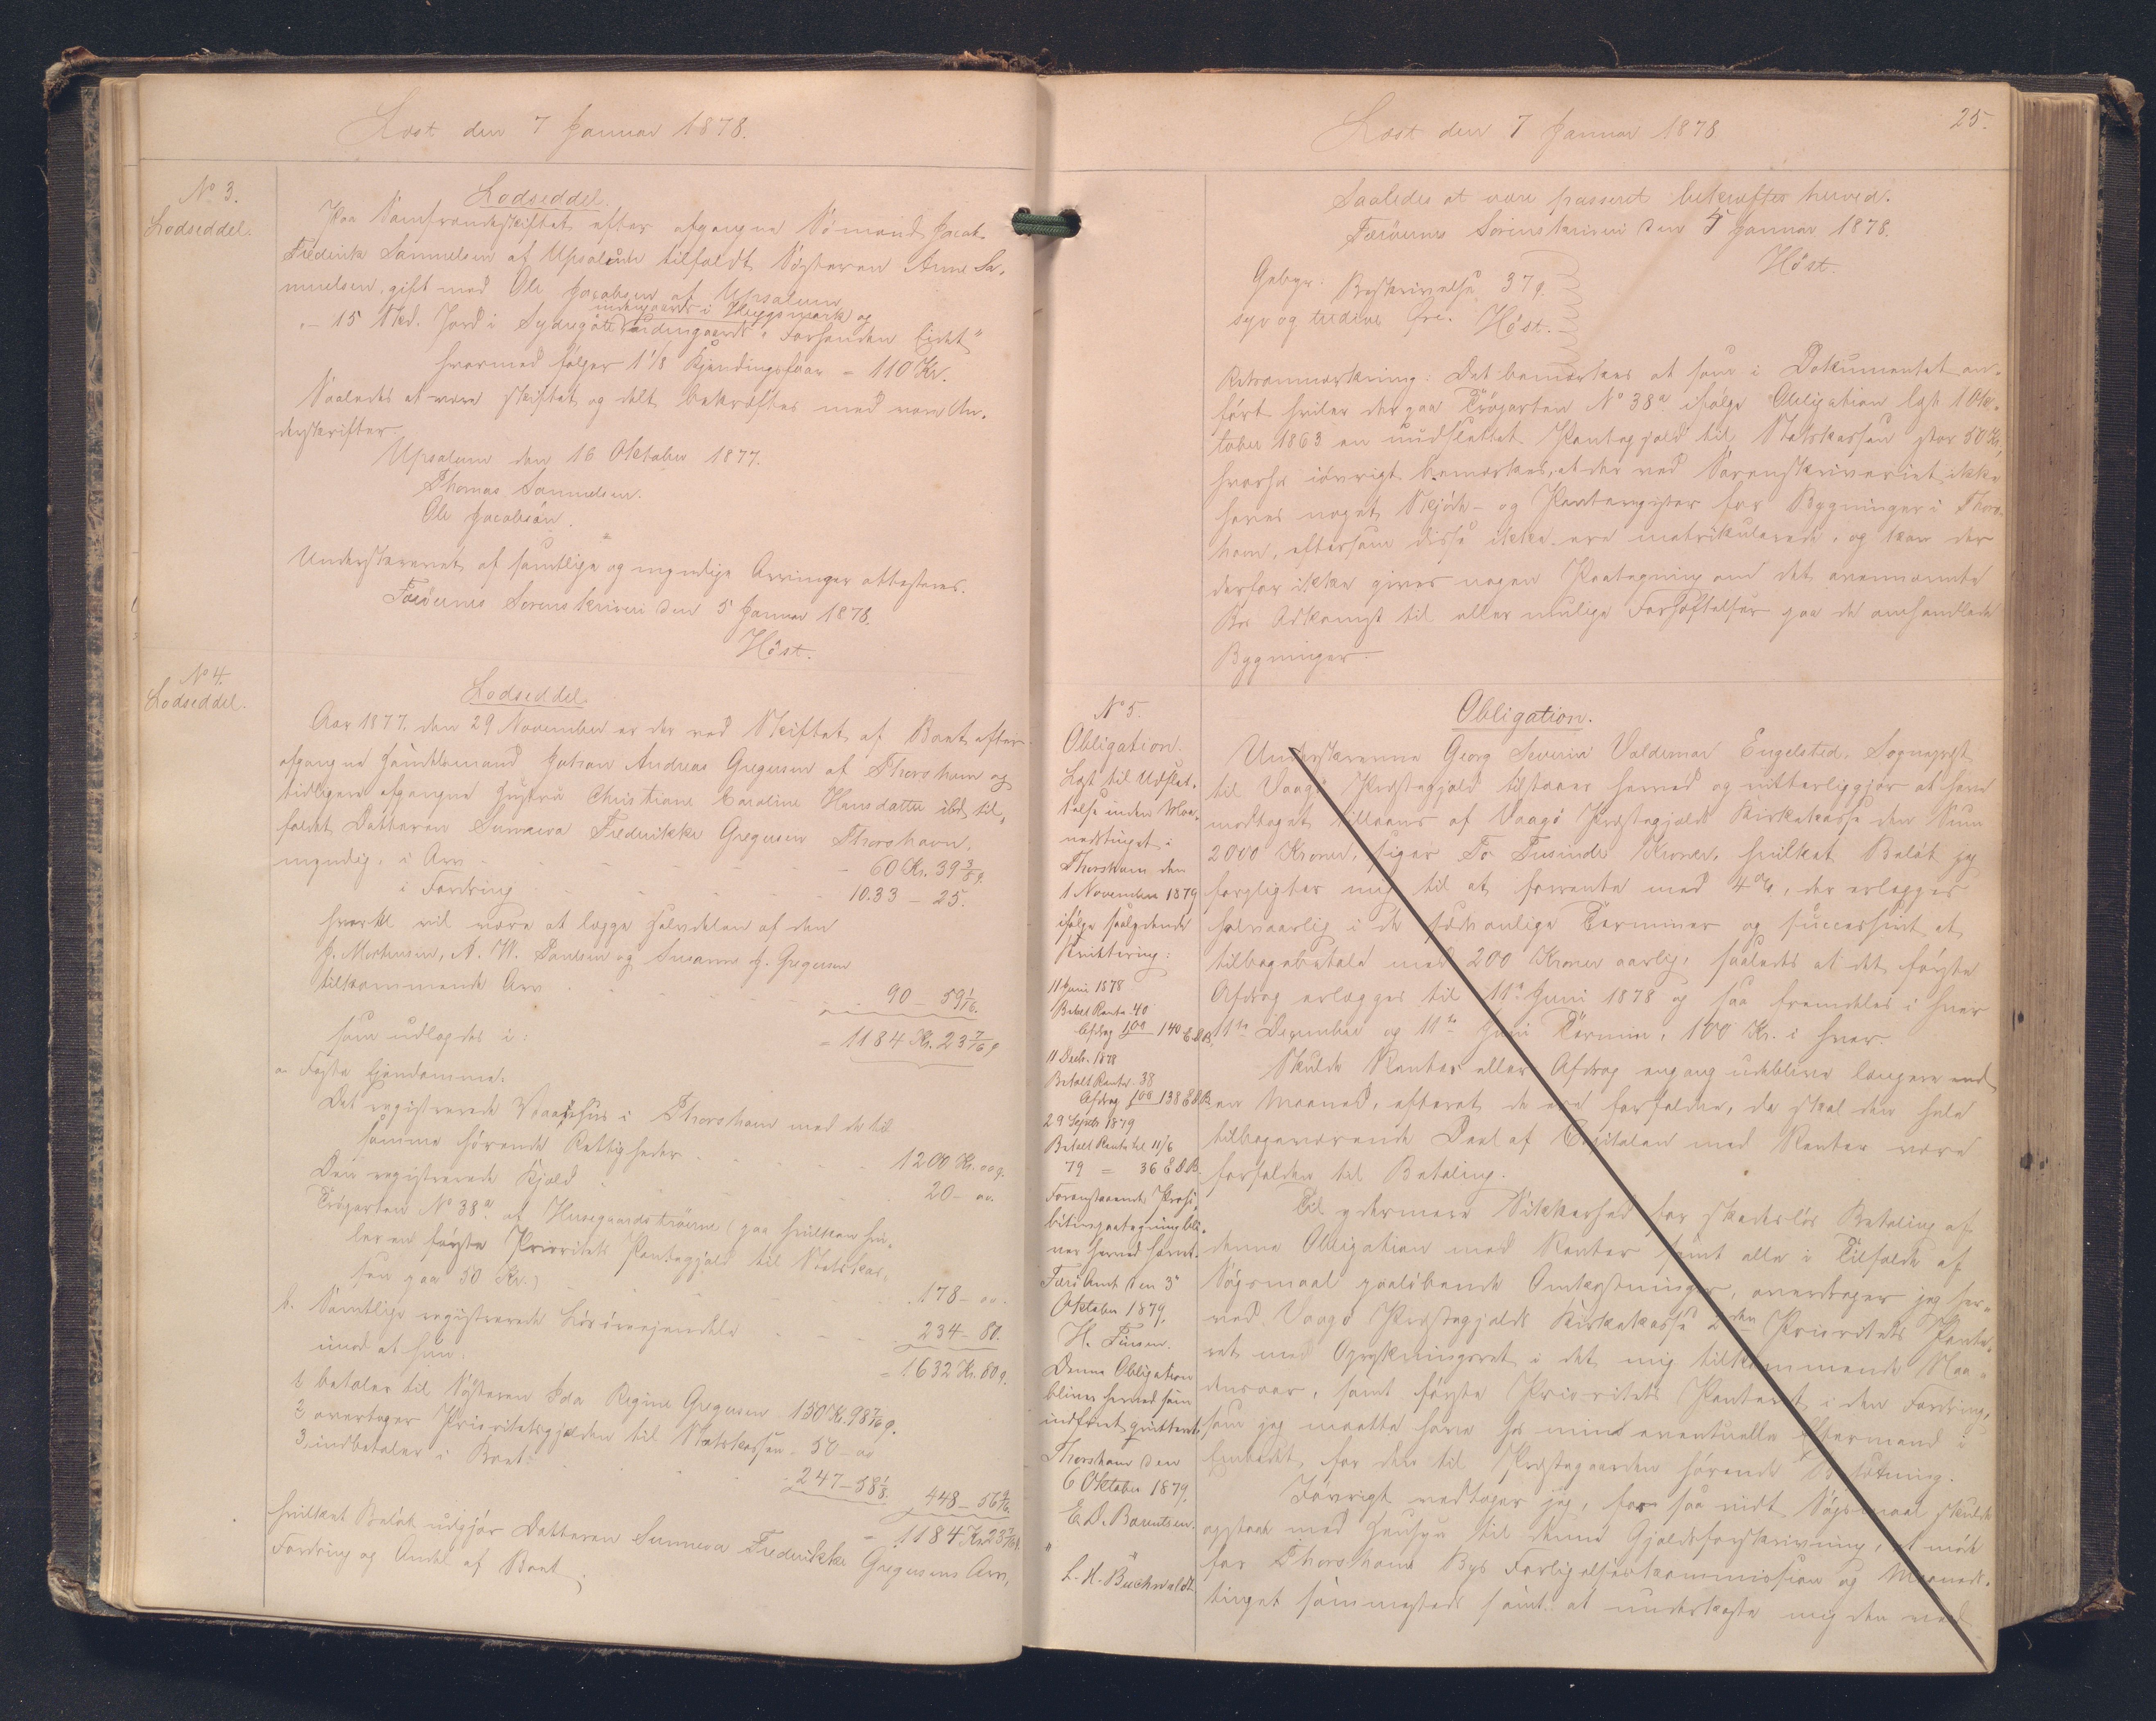 Læst den 7 Januar 1878.
No 3.
Lodseddel.
Lodseddel.
Paa Samfrændeskiftet efter afgangne Sømand Jacob
Frederik Samuelsen af Upsalum tilfaldt Søsteren Anne Sa-
muelsen, gift med Ole Jacobsen af Upsalum
undergaards i Heygsmark og
15 Skd. Jord i Sydregøte Forhenden Eidet"
hvormed følger 1 1/8 Kjendingsfaar = 110 Kr.
Saaledes at være skiftet og delt bekræftes med vore Un-
derskrifter.
Upsalum den 16 Oktober 1877.
Thomas Samuelsen.
Ole Jacobsen.
Underskrevet af samtlige og myndige Arvinger attesteres.
Færøernes Sorenskriveri den 5 Januar 1878.
Høst.
No 4.
Lodseddel.
Lodseddel
Aar 1877. den 29 November er der ved Skiftet af Boet efter
afgangne Huusmand Johan Andreas Gregersen af Thorshavn og
tidligere afgangne Hustru Christiane Caroline Hansdatter ibd. til-
faldet Datteren Sunneva Frederikke Gregersen Thorshavn,
myndig, i Arv - 60 Kr. 39 3/8 ø.
i Fordring 1033 - 25.
hvortil vil være at lægge Halvdelen af den
J. Mortensen, N. W. Poulsen og Susanne J. Gregersen
tilkommende Arv 90 - 59 1/16.
= 1184 Kr. 23 7/16 ø
som udlægges i:
a Faste Ejendomme.
Det registrerede Vaaøhus i Thorshavn med de til
samme hørende Rettigheder 1200 Kr. oo ø.
Den registrerede Kjæld 20 - oo.
Trøgarten No 38a af Husegaardstrøerne (paa hvilken hvi-
ler en første Prioritets Pantegjæld til Statskas-
sen paa 50 Kr.) 178 - oo.
b. Samtlige registrerede Løsøreejendele 234 - 80.
= 1632 Kr. 80 ø.
imod at hun:
1 betaler til Søsteren Ida Regine Gregersen 150 Kr. 98 7/16 ø.
2 overtager Prioritetsgjælden til Statskassen - 50 - oo
3, indbetaler i Boet 247 - 58 1/8. 448 - 56 9/16.
= 1184 Kr. 23 7/16 ø.
hvilket Beløb udgjør Datteren Sunneva Frederikke Gregersens Arv,
Fordring og Andel af Boet.
Læst den 7 Januar 1878
25.
Saaledes at være passeret bekræftes herved.
Færøernes Sorenskriveri den 5 Januar 1878.
Høst.
Gebyr: Beskrivelse 37 ø.
syv og tredive Øre. Høst.
Retsanmærkning: Det bemærkes at som i Dokumentet an-
ført hviler der paa Trøgarten No 38a ifølge Obligation læst 1 Ok-
tober 1863 en uudslettet Pantegjæld til Statskassen stor 50 Kr,
hvorhos iøvrigt bemærkes, at der ved Sorenskriveriet ikke
haves noget Skjøde- og Panteregister for Bygninger i Thors-
havn, eftersom disse ikke ere matrikulerede, og kan der
derfor ikke gives nogen Paategning om det ovennævnte
Bos Adkomst til eller mulige Forhæftelser paa de omhandlede
Bygninger.
No 5.
Obligation.
Læst til Udslet-
telse inden Maa-
nedstinget i
Thorshavn den
1 November 1879
ifølge saalydende
Kvittering:
11 Juni 1878
Betalt Rente 40
Afdrag 100 140 E.D.B.
11 Decb. 1878
Betalt Rente 38
Afdrag 100 138 E.D.B.
29 Septb. 1879
Betalt Rente til 11/6
79 = 36 E.D.B.
Foranstaaende Prohi-
bitivpaategning bli-
ver herved hævet.
Færø Amt den 3e
Oktober 1879.
H. Finsen.
Denne Obligation
bliver herved som
indfriet quitteret.
Thorshavn den
6 Oktober 1879.
E. D. Bærentsen.
L. H. Buchwaldt
Obligation.
Underskrevne Georg Severin Valdemar Engelsted, Sognepræst
til Vaagø Præstegjæld tilstaaer herved og vitterliggjør at have
modtaget tillaans af Vaagø Præstegjælds Kirkekasse den Sum
2000 Kroner, siger To Tusinde Kroner, hvilket Beløb jeg
forpligter mig til at forrente med 4%, der erlægges
halvaarlig i de sædvanlige Terminer og successivt at
tilbagebetale med 200 Kroner aarlig, saaledes at det første
Afdrag erlægges til 11te Juni 1878 og saa fremdeles i hver
11te December og 11te Juni Termin, 100 Kr. i hver.
Skulde Renter eller Afdrag engang udeblive længere end
en Maaned, efterat de ere forfaldne, da skal den hele
tilbageværende Deel af Capitalen med Renter være
forfalden til Betaling.
Til ydermere Sikkerhed for skadesløs Betaling af
denne Obligation med Renter samt alle i Tilfælde af
Søgsmaal paaløbende Omkostninger, overdrager jeg her-
ved Vaagø Præstegjælds Kirkekasse 2den Prioritets Pante-
ret med Oprykningsret i det mig tilkommende Naa-
densaar, samt første Prioritets Panteret i den Fordring,
som jeg maatte have hos mine eventuelle Eftermænd i
Embedet, for den til Præstegaarden hørende Besætning.
Iøvrigt vedtager jeg, for saa vidt Søgsmaal skulde
opstaae med Hensyn til denne Gjældsforskrivning, at møde
for Thorshavns Byes Forligelseskommission og Maaneds-
tinget sammesteds samt at underkaste mig den ved